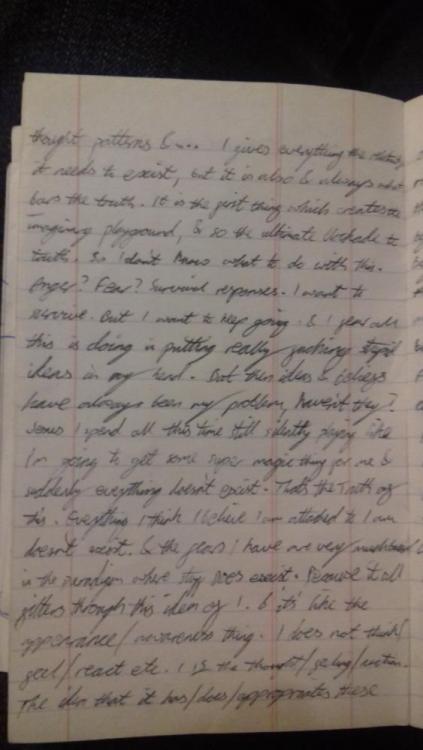 thought patterns &... I gives everything the
it needs to exist, but it is also & always what
bars the truth. It is the first thing which creates the
imaginary playground, & so the ultimate blockade to
truth. So I don't know what to do with this.
Anger? Fear? Survival responses. I want to
survive. But I want to keep going. & I fear all
this is doing is putting really fucking stupid
ideas in my head. But then ideas & beliefs
have always been my problem, haven't they?
Jesus I spend all this time still silently praying like
I'm going to get some super magic thing for me &
suddenly everything doesn't exist. That's the Truth of
this. Everything I think I believe I am attached to I am
doesn't exist. & the fears I have are very much
in the paradigm where stuff DOES exist. Because it all
filters through this idea of I. & it's like the
appearance/awareness thing. I does not think/
feel/react etc. I IS the thought/feeling/action.
The idea that it has/does/appropriates these